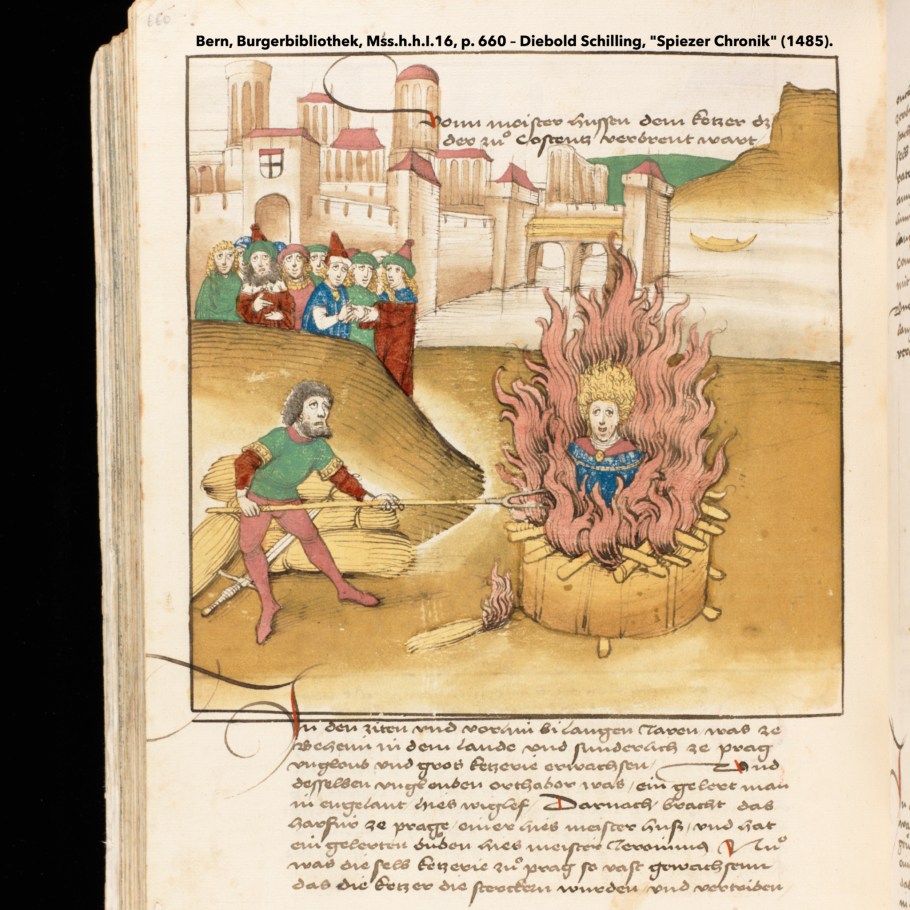 660
Bern, Burgerbibliothek, Mss.h.h.I.16, p. 660 – Diebold Schilling, "Spiezer Chronik" (1485).
Vonn meister hussen dem ketzer dz
der zuͦ Costentz verbrent wart
In den ziten vnd vorhin bi langen Jaren was ze
Behemm in dem lande vnd sunderlich ze prag
vngloub vnd gros ketzerie erwachsen Vnd
desselben vnglouben orthaber was ein gelert man
in engelant hies wiglef Darnach bracht das
harfúr ze prage einer hies meister huß vnd hat
ein gelerten búben hies meister Jeronimus Nuͦ
was die selb ketzerie zuͦ prag so vast gewachsenn
das die ketzer die sterckern wurden vnd vertriben